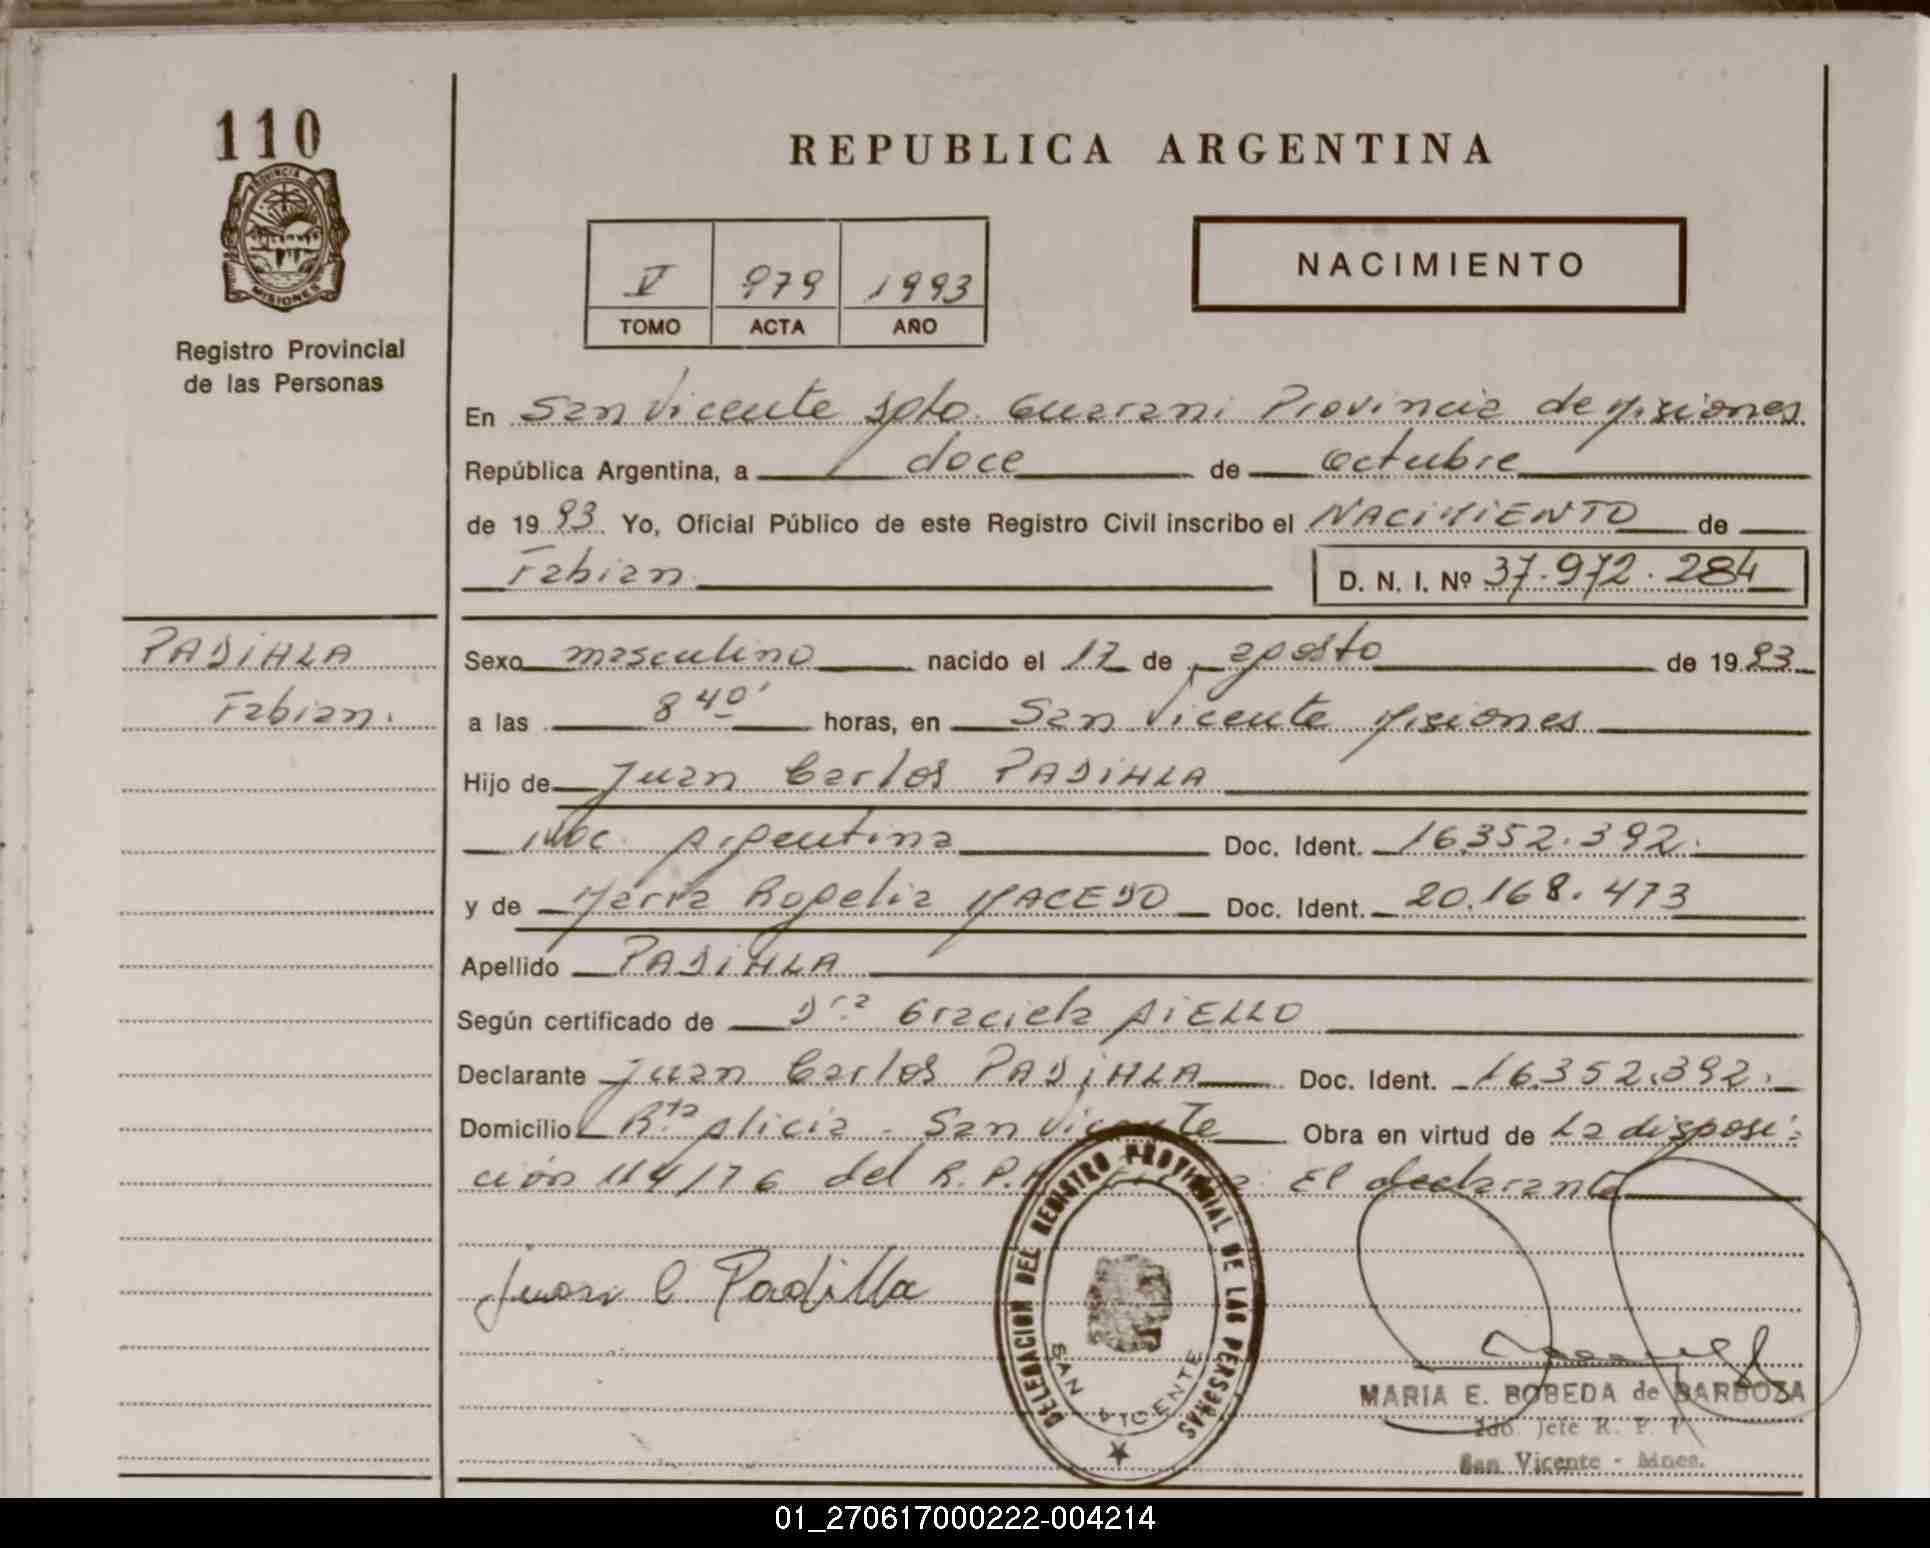 110
PROVINCIA DE
MISIONES
Registro Provincial
de las Personas
REPUBLICA ARGENTINA
V 979 1993
TOMO ACTA AÑO
NACIMIENTO
En San Vicente Dpto. Guarani Provincia de Misiones
República Argentina, a doce de octubre
de 1993 Yo, Oficial Público de este Registro Civil inscribo el NACIMIENTO de
Fabian D. N. I. Nº 37.972.284
PADILLA
Fabian.
Sexo masculino nacido el 17 de agosto de 1993
a las 8 40' horas, en San Vicente Misiones
Hijo de Juan Carlos PADILLA
Nac. Argentina Doc. Ident. 16.352.392.
y de Maria Rogelia MACEDO Doc. Ident. 20.168.473
Apellido PADILLA
Según certificado de Dra Graciela AIELLO
Declarante Juan Carlos PADILLA Doc. Ident. 16.352.392.
Domicilio Rta Alicia - San Vicente Obra en virtud de La disposi-
ción 114/76 del R.P. El declarante
Juan C. Padilla
DELEGACION DEL REGISTRO PROVINCIAL DE LAS PERSONAS
SAN VICENTE
MARIA E. BOBEDA de BARBOZA
2do. Jefe R. P. P.
San Vicente - Mnes.
01_270617000222-004214